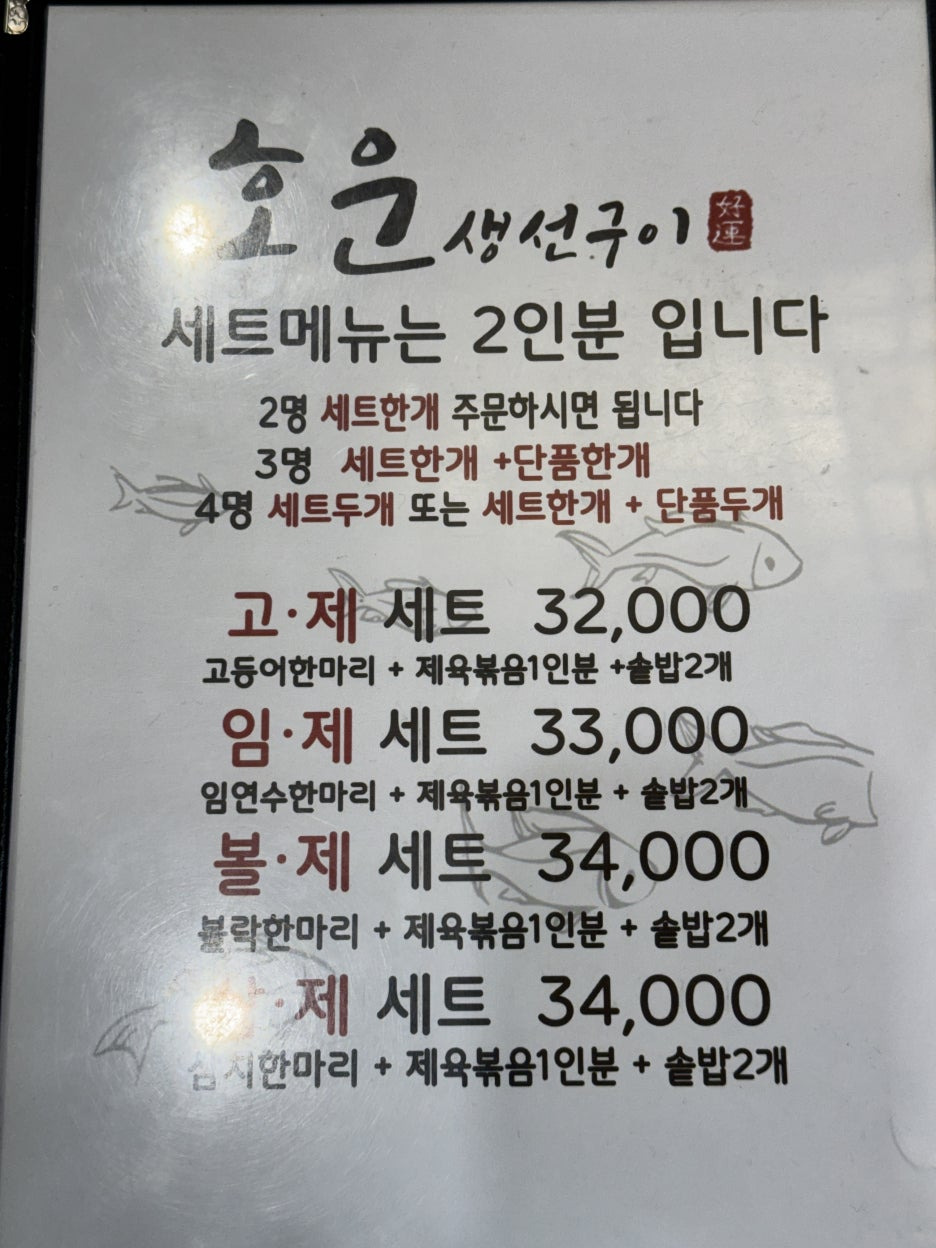 호운 생선구이 好運
세트메뉴는 2인분 입니다
2명 세트한개 주문하시면 됩니다
3명 세트한개 +단품한개
4명 세트두개 또는 세트한개 + 단품두개
고·제 세트 32,000
고등어한마리 + 제육볶음1인분 +솥밥2개
임·제 세트 33,000
임연수한마리 + 제육볶음1인분 + 솥밥2개
볼·제 세트 34,000
볼락한마리 + 제육볶음1인분 + 솥밥2개
·제 세트 34,000
삼치한마리 + 제육볶음1인분 + 솥밥2개